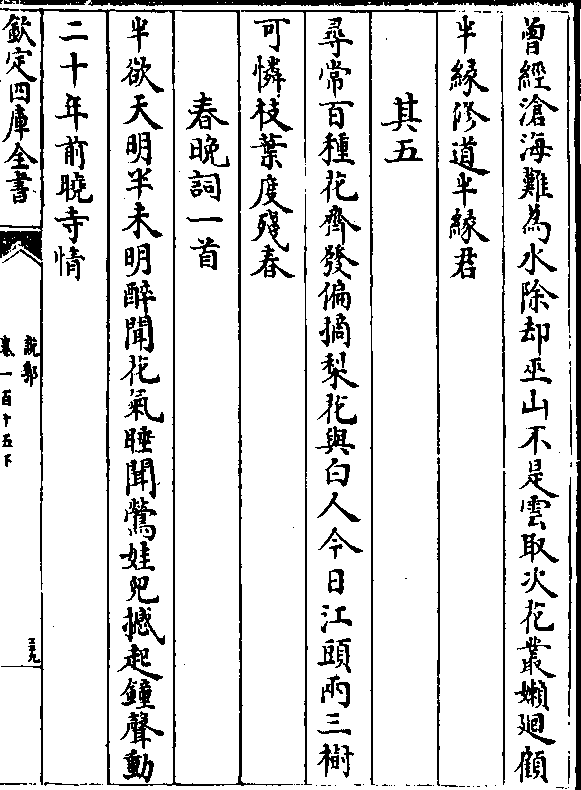 曾經滄海難為水除却巫山不是雲取次花叢嬾廻顧
半緣修道半緣君
其五
尋常百種花齊發偏摘梨花與白人今日江頭兩三樹
可憐枝葉度殘春
春晚詞一首
半欲天明半未明醉聞花氣睡聞鶯娃兒撼起鐘聲動
二十年前曉寺情
欽定四庫全書
說郛
卷一百十五下
三十九